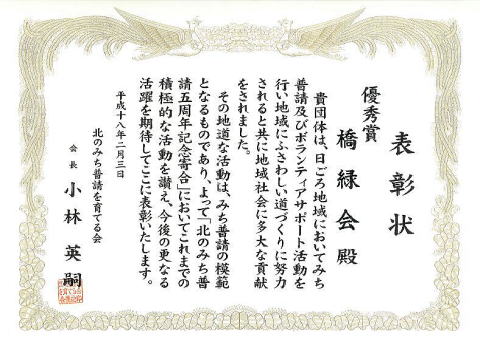 表彰状
優秀賞
橋緑会殿
貴団体は、日ごろ地域においてみち
普請及びボランティアサポート活動を
行い地域にふさわしい道づくりに努力
されると共に地域社会に多大な貢献
をされました。
その地道な活動は、みち普請の模範
となるものであり、よって「北のみち普
請五周年記念寄合」においてこれまでの
積極的な活動を讃え、今後の更なる
活躍を期待してここに表彰いたします。
平成十八年二月三日
北のみち普請を育てる会
会長 小林英嗣